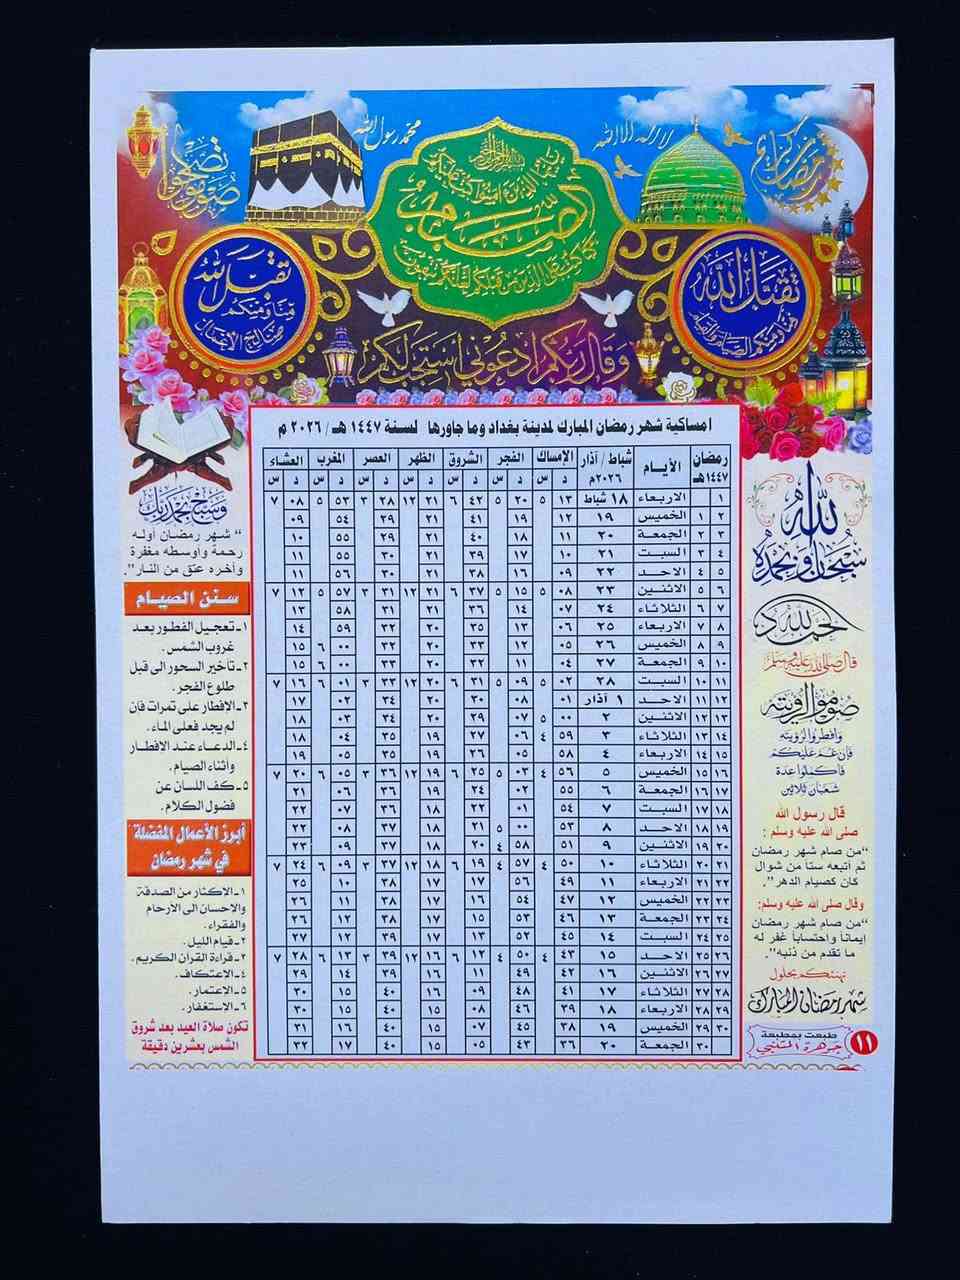 رمضان كريم
لا إله إلا الله
محمد رسول الله
صوموا تصحوا
بسم الله الرحمن الرحيم
يا أيها الذين آمنوا كتب عليكم
الصيام
كما كتب على الذين من قبلكم لعلكم تتقون
تقبل الله
منا ومنكم الصيام والقيام
تقبل الله
منا ومنكم
صالح الاعمال
وقال ربكم ادعوني أستجب لكم
امساكية شهر رمضان المبارك لمدينة بغداد وما جاورها لسنة ١٤٤٧ هـ / ٢٠٢٦ م
رمضان ١٤٤٧هـ الأيام شباط / آذار ٢٠٢٦م الإمساك الفجر الشروق الظهر العصر المغرب العشاء
د س د س د س د س د س د س د س
١ الاربعاء ١٨ شباط ١٣ ٥ ٢٠ ٥ ٤٢ ٦ ٢١ ١٢ ٢٨ ٣ ٥٣ ٥ ٠٨ ٧
٢ ١ الخميس ١٩ ١٢ ١٩ ٤١ ٢١ ٢٩ ٥٤ ٠٩
٣ ٢ الجمعة ٢٠ ١١ ١٨ ٤٠ ٢١ ٢٩ ٥٥ ١٠
٤ ٣ السبت ٢١ ١٠ ١٧ ٣٩ ٢١ ٣٠ ٥٥ ١١
٥ ٤ الاحد ٢٢ ٠٩ ١٦ ٣٨ ٢١ ٣٠ ٥٦ ١١
٦ ٥ الاثنين ٢٣ ٠٨ ٥ ١٥ ٥ ٣٧ ٦ ٢١ ١٢ ٣١ ٣ ٥٧ ٥ ١٢ ٧
٧ ٦ الثلاثاء ٢٤ ٠٧ ١٤ ٣٦ ٢١ ٣١ ٥٨ ١٣
٨ ٧ الاربعاء ٢٥ ٠٦ ١٣ ٣٥ ٢٠ ٣٢ ٥٩ ١٤
٩ ٨ الخميس ٢٦ ٠٥ ١٢ ٣٣ ٢٠ ٣٢ ٠٠ ٦ ١٥
١٠ ٩ الجمعة ٢٧ ٠٤ ١١ ٣٢ ٢٠ ٣٣ ٠٠ ٦ ١٥
١١ ١٠ السبت ٢٨ ٠٢ ٥ ٠٩ ٥ ٣١ ٦ ٢٠ ١٢ ٣٣ ٣ ٠١ ٦ ١٦ ٧
١٢ ١١ الاحد ١ آذار ٠١ ٠٨ ٣٠ ٢٠ ٣٤ ٠٢ ١٧
١٣ ١٢ الاثنين ٢ ٠٠ ٥ ٠٧ ٢٩ ٢٠ ٣٤ ٠٣ ١٨
١٤ ١٣ الثلاثاء ٣ ٥٩ ٤ ٠٦ ٢٧ ١٩ ٣٥ ٠٤ ١٨
١٥ ١٤ الاربعاء ٤ ٥٨ ٠٥ ٢٦ ١٩ ٣٥ ٠٥ ١٩
١٦ ١٥ الخميس ٥ ٥٦ ٤ ٠٣ ٥ ٢٥ ٦ ١٩ ١٢ ٣٦ ٣ ٠٥ ٦ ٢٠ ٧
١٧ ١٦ الجمعة ٦ ٥٥ ٠٢ ٢٤ ١٩ ٣٦ ٠٦ ٢١
١٨ ١٧ السبت ٧ ٥٤ ٠١ ٢٢ ١٨ ٣٦ ٠٧ ٢٢
١٩ ١٨ الاحد ٨ ٥٣ ٠٠ ٥ ٢١ ١٨ ٣٧ ٠٨ ٢٢
٢٠ ١٩ الاثنين ٩ ٥١ ٥٨ ٤ ٢٠ ١٨ ٣٧ ٠٩ ٢٣
٢١ ٢٠ الثلاثاء ١٠ ٥٠ ٤ ٥٧ ٤ ١٩ ٦ ١٨ ١٢ ٣٧ ٣ ٠٩ ٦ ٢٤ ٧
٢٢ ٢١ الاربعاء ١١ ٤٩ ٥٦ ١٧ ١٧ ٣٨ ١٠ ٢٥
٢٣ ٢٢ الخميس ١٢ ٤٧ ٥٤ ١٦ ١٧ ٣٨ ١١ ٢٦
٢٤ ٢٣ الجمعة ١٣ ٤٦ ٥٣ ١٥ ١٧ ٣٨ ١٢ ٢٦
٢٥ ٢٤ السبت ١٤ ٤٥ ٥٢ ١٣ ١٧ ٣٩ ١٢ ٢٧
٢٦ ٢٥ الاحد ١٥ ٤٣ ٤ ٥٠ ٤ ١٢ ٦ ١٦ ١٢ ٣٩ ٣ ١٣ ٦ ٢٨ ٧
٢٧ ٢٦ الاثنين ١٦ ٤٢ ٤٩ ١١ ١٦ ٣٩ ١٤ ٢٩
٢٨ ٢٧ الثلاثاء ١٧ ٤١ ٤٨ ٠٩ ١٦ ٤٠ ١٥ ٣٠
٢٩ ٢٨ الاربعاء ١٨ ٣٩ ٤٦ ٠٨ ١٥ ٤٠ ١٥ ٣٠
٣٠ ٢٩ الخميس ١٩ ٣٨ ٤٥ ٠٧ ١٥ ٤٠ ١٦ ٣١
٣٠ الجمعة ٢٠ ٣٦ ٤٣ ٠٥ ١٥ ٤٠ ١٧ ٣٢
سبحان الله وبحمده
الحمد لله
قال صلى الله عليه وسلم
صوموا لرؤيته
وافطروا لرؤيته
فإن غم عليكم
فاكملوا عدة
شعبان ثلاثين
قال رسول الله
صلى الله عليه وسلم :
"من صام شهر رمضان
ثم أتبعه ستا من شوال
كان كصيام الدهر".
وقال صلى الله عليه وسلم:
"من صام شهر رمضان
إيماناً واحتساباً غفر له
ما تقدم من ذنبه".
نهنئكم بحلول
شهر رمضان المبارك
طبعت بمطبعة
جوهرة المتنبي
١١
وسبح بحمد ربك
" شهر رمضان أوله
رحمة وأوسطه مغفرة
وأخره عتق من النار".
سنن الصيام
١ـ تعجيل الفطور بعد
غروب الشمس.
٢ـ تأخير السحور الى قبل
طلوع الفجر.
٣ـ الافطار على تمرات فان
لم يجد فعلى الماء.
٤ـ الدعاء عند الافطار
واثناء الصيام.
٥ـ كف اللسان عن
فضول الكلام.
أبرز الأعمال المفضلة
في شهر رمضان
١ـ الاكثار من الصدقة
والاحسان الى الارحام
والفقراء.
٢ـ قيام الليل.
٣ـ قراءة القرآن الكريم.
٤ـ الاعتكاف.
٥ـ الاعتمار.
٦ـ الاستغفار.
تكون صلاة العيد بعد شروق
الشمس بعشرين دقيقة